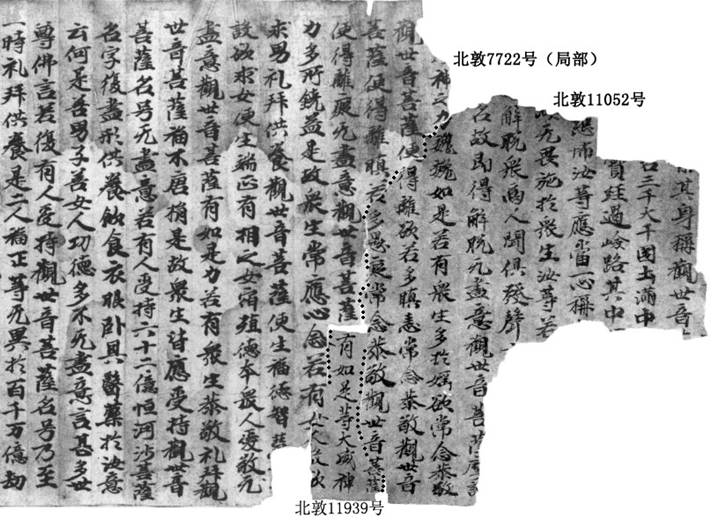 北敦7722号（局部）
北敦11052号
其身稱觀世音
三千大千國土滿中
賫經過嶮路其中
恐怖汝等應當一心稱
以无畏施於眾生汝等若
解脫眾商人聞俱發聲
名故即得解脫无盡意觀世音菩薩摩訶
神之力巍巍如是若有眾生多於婬欲常念恭敬
觀世音菩薩便得離欲若多瞋恚常念恭敬觀世音
菩薩便得離瞋若多愚癡常念恭敬觀世音菩薩
便得離癡无盡意觀世音菩薩有如是等大威神
力多所饒益是故眾生常應心念若有女人設欲
求男礼拜供養觀世音菩薩便生福德智慧
設欲求女便生端正有相之女宿殖德本眾人愛敬无
盡意觀世音菩薩有如是力若有眾生恭敬礼拜觀
世音菩薩福不唐捐是故眾生皆應受持觀世音
菩薩名号无盡意若有人受持六十二億恒河沙菩薩
名字復盡形供養飲食衣服卧具醫藥於汝意
云何是善男子善女人功德多不无盡意言甚多世
尊佛言若復有人受持觀世音菩薩名号乃至
一時礼拜供養是二人福正等无異於百千万億劫
北敦11939号